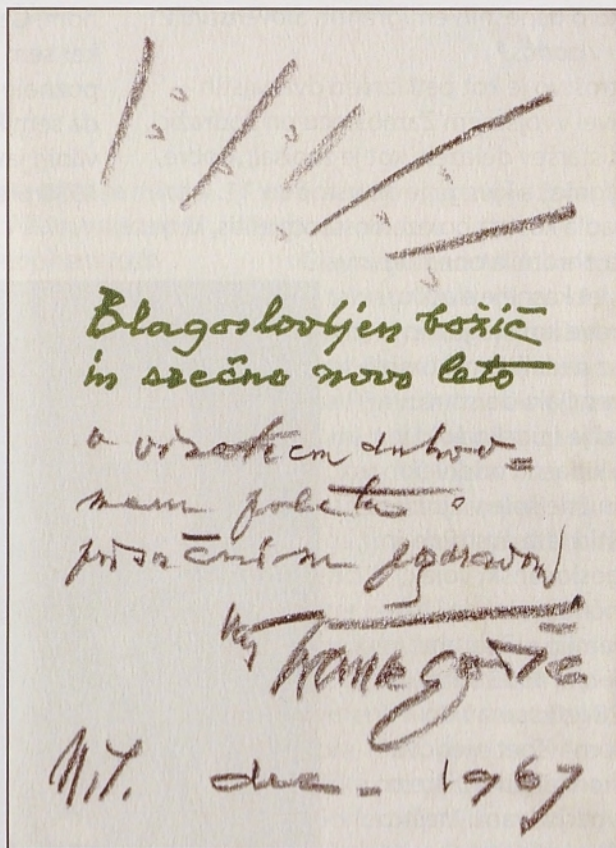 Blagoslovljen božič
in srečno novo leto
v visokem duhov=
nem poletu
prisrčnim pozdravom
Vaj France Gorše
N.Y. dec - 1967